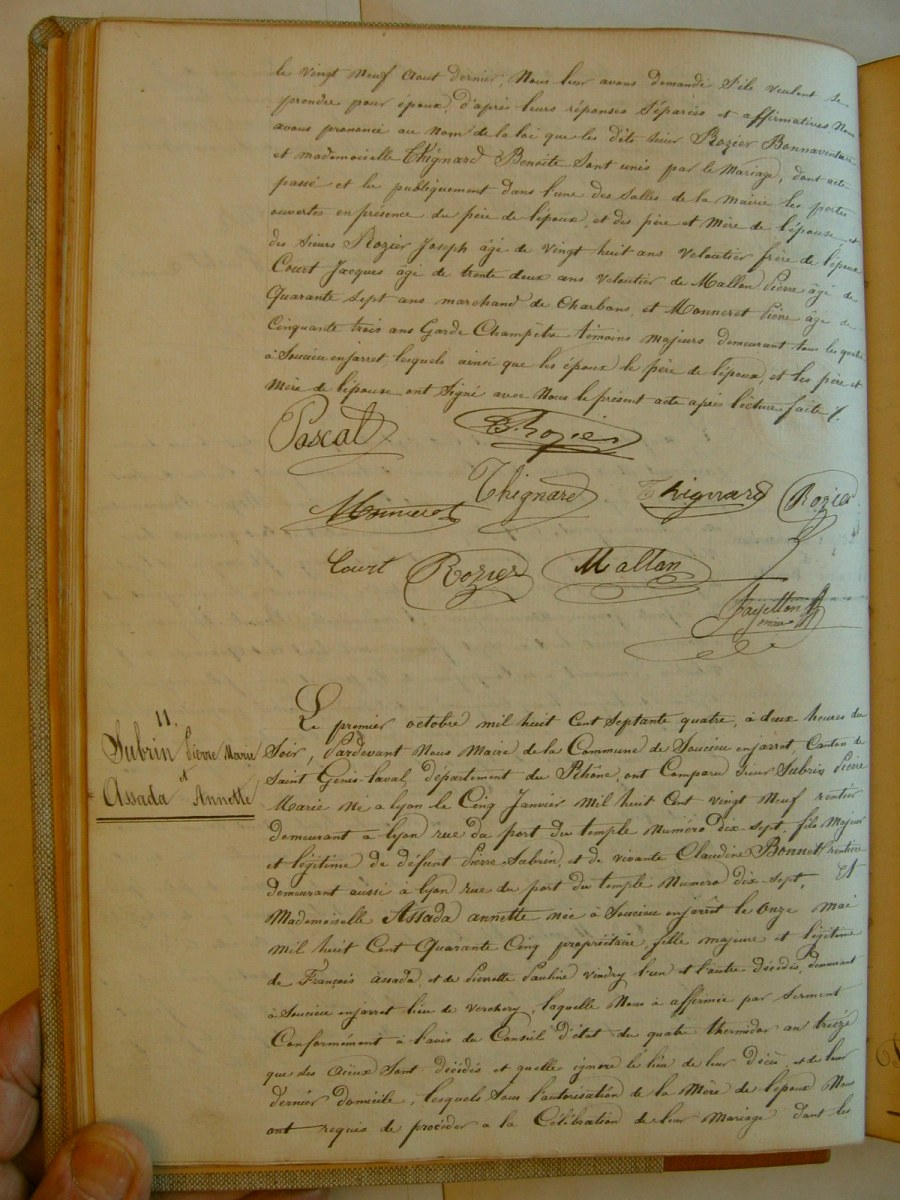 le vingt neuf aout dernier, Nous leur avons demandé s'ils veulent se
prendre pour époux, d'après leurs réponses séparées et affirmatives Nous
avons prononcé au nom de la loi que les dits sieur Rozier Bonnaventure
et mademoiselle Thignard Benoite sont unis par le Mariage, dont acte
passé et lu publiquement dans l'une des salles de la mairie les portes
ouvertes en présence du père de l'époux et des père et mère de l'épouse et
des sieurs Rozier Joseph âgé de vingt huit ans veloutier frère de l'époux
Court Jacques âgé de trente deux ans veloutier de Mallan Pierre âgé de
quarante sept ans marchand de Charbons, et Monneret Pierre âgé de
Cinquante trois ans Garde Champêtre témoins majeurs demeurant tous les quatre
à Soucieu enjarret, lesquels ainsi que les époux le père de l'époux, et les père et
mère de l'épouse ont signé avec Nous le présent acte après lecture faite /.
Pascal Rozier
Monneret Thignard Thignard Rozier
Court Rozier Mallan
Fayetton
maire
11.
Subrin Pierre Marie
et
Assada Annette
Le premier octobre mil huit Cent septante quatre, à deux heures du
Soir, Pardevant Nous Maire de la Commune de Soucieu enjarret, Canton de
Saint Genis-Laval, département du Rhône, ont Comparu sieur Subrin Pierre
Marie Né a lyon le Cinq Janvier mil huit Cent vingt Neuf rentier
demeurant à lyon rue du port du temple Numéro dix-sept, fils Majeur
et légitime de défunt Pierre Subrin, et de vivante Claudine Bonnet rentière
demeurant aussi à lyon rue du port du temple Numéro dix-sept, Et
Mademoiselle Assada annette née à Soucieu enjarret le Onze mai
mil huit Cent Quarante Cinq propriétaire, fille majeure et légitime
de François assada, et de Pierrette Pauline vindry l'un et l'autre décédés, demeurant
à Soucieu enjarret lieu de verchery, laquelle Nous à affirmée par serment
Conformément à l'avis du Conseil d'état du quatre thermidor an treize
que ses aïeux sont décédés et quelle ignore le lieu de leur décès, et de leur
dernier domicile, lesquels sous l'autorisation de la Mère de l'époux Nous
ont requis de procéder a la Célébration de leur Mariage dont les